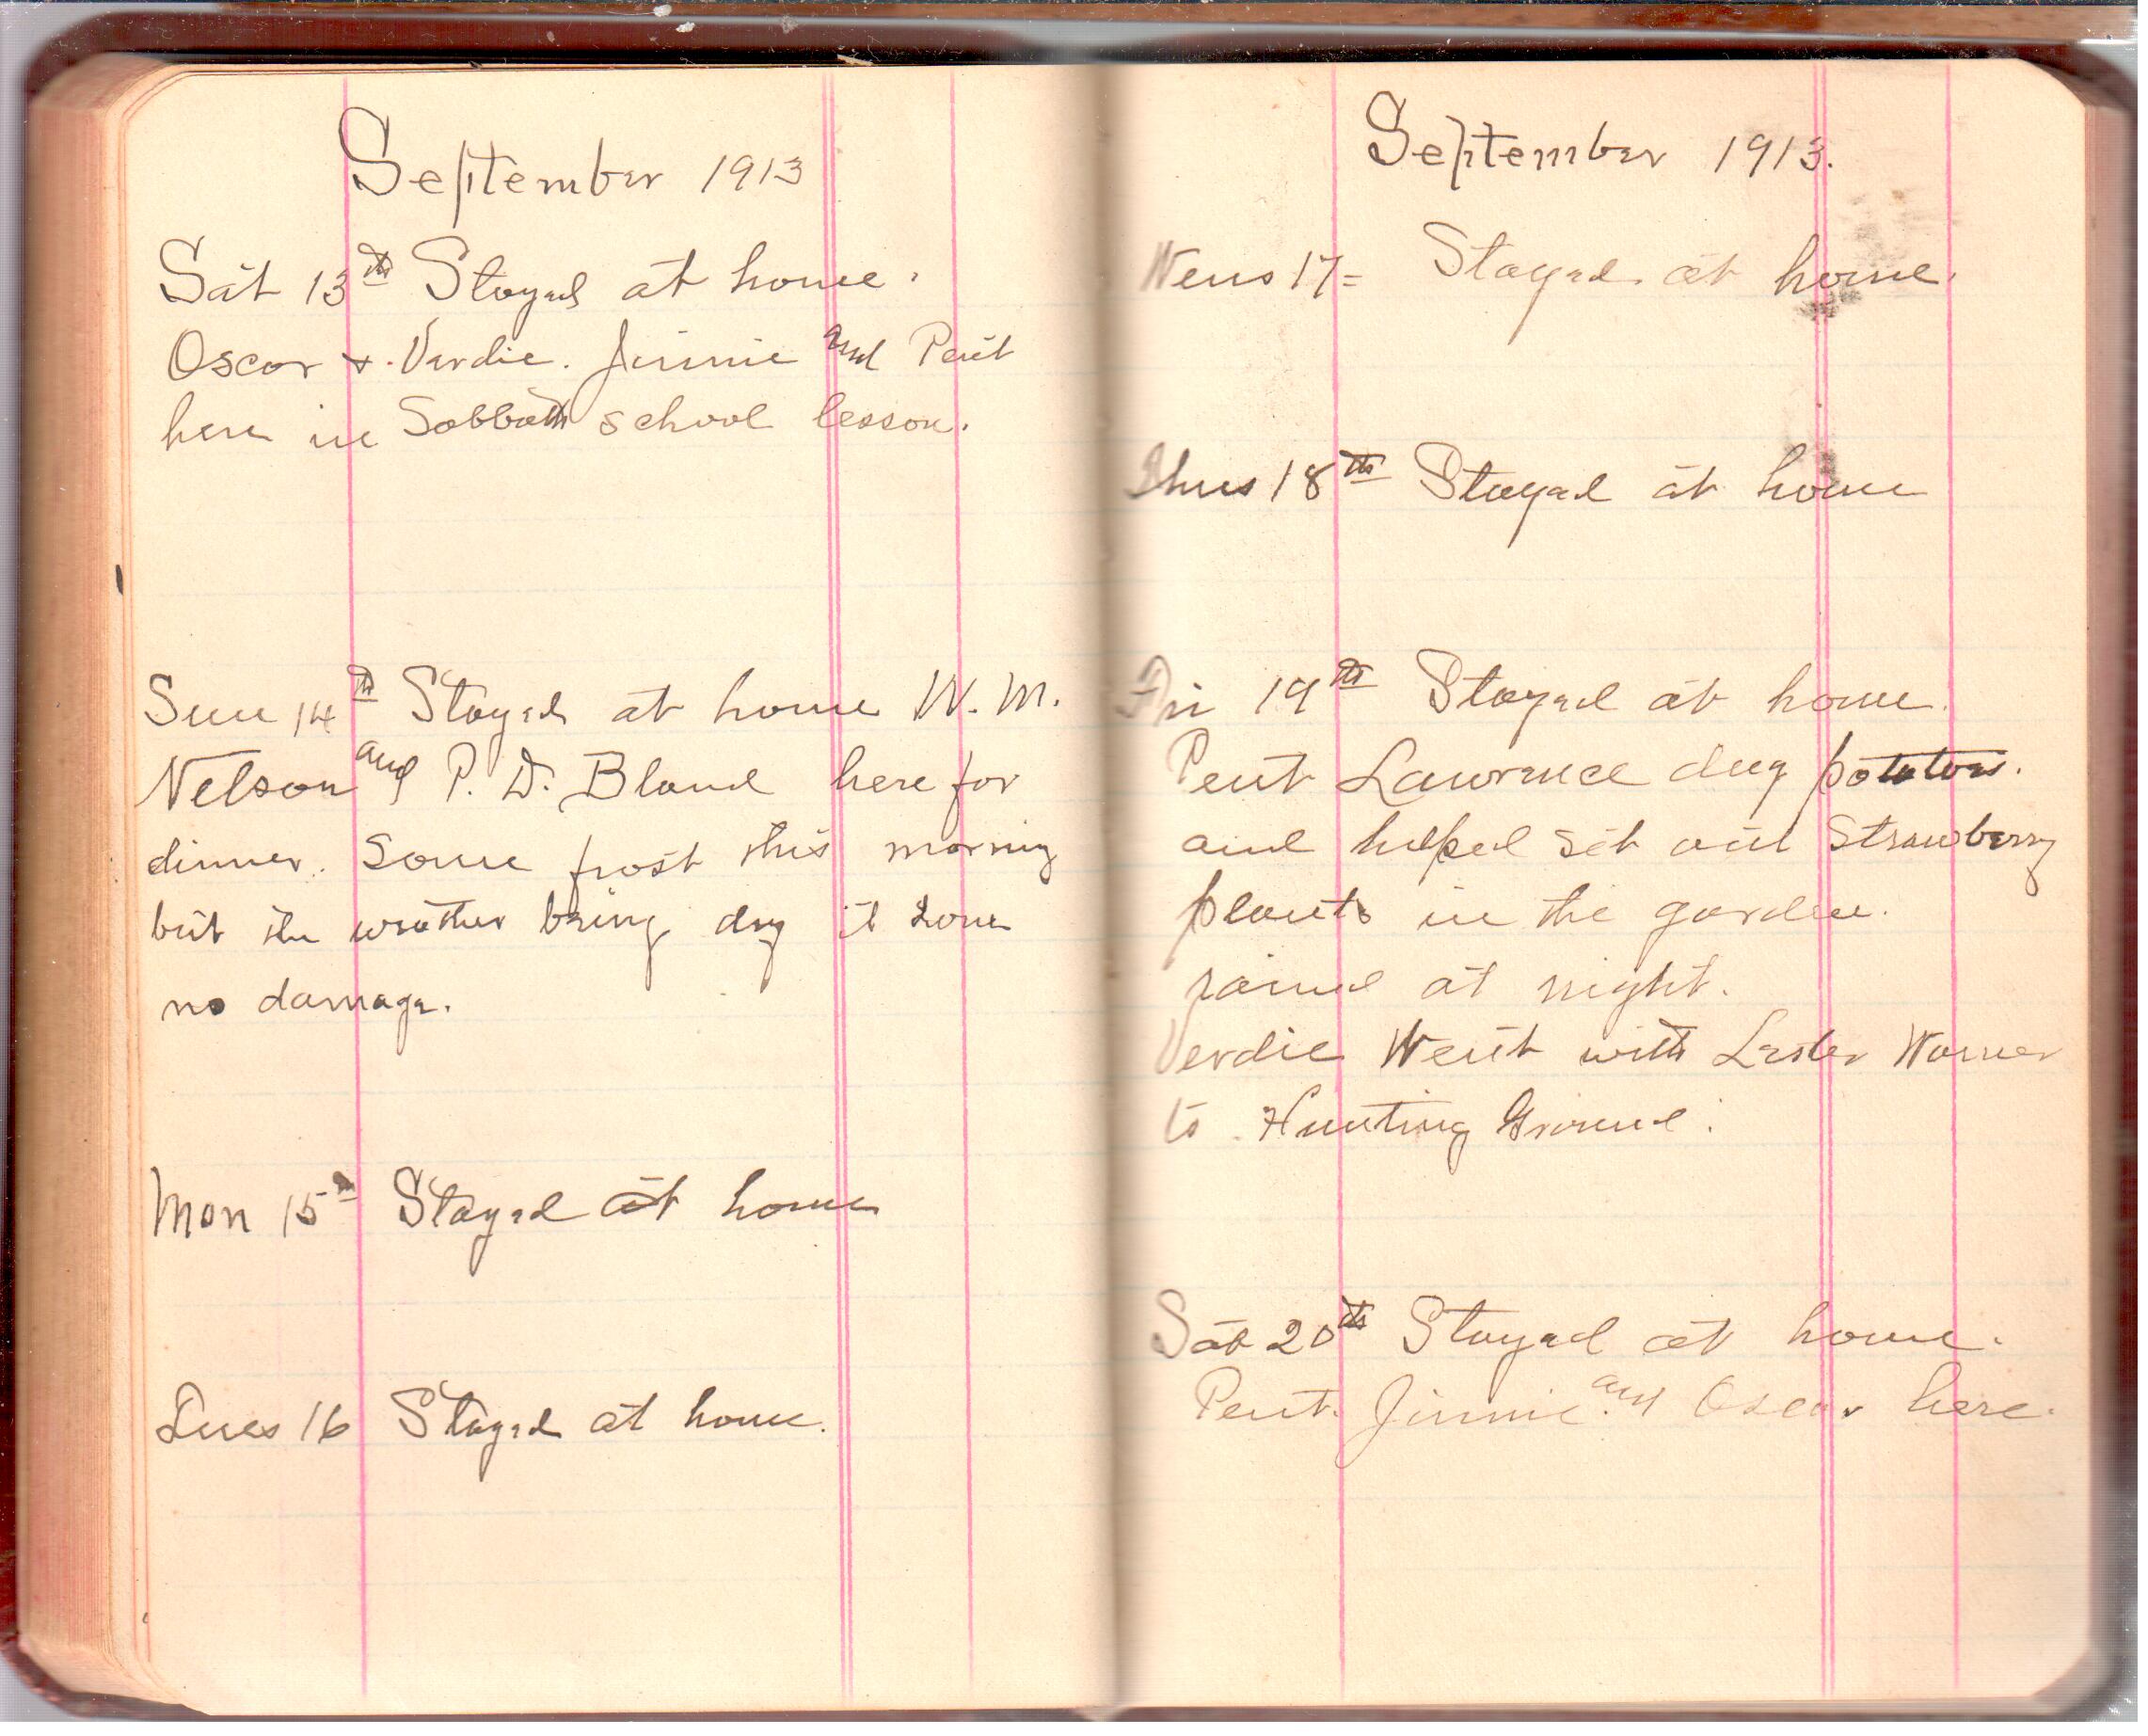 September 1913
Sat 13th Stayed at home.
Oscar &. Verdie. Jinnie and Pent
here in Sabbath school lesson.
Sun 14th Stayed at home W. M.
Nelson and P. D. Bland here for
dinner. Some frost this morning
but the weather being dry it done
no damage.
Mon 15th Stayed at home
Tues 16 Stayed at home.
September 1913.
Wens 17= Stayed at home.
Thus 18th Stayed at home
Fri 19th Stayed at home.
Pent Lawrence dug potatoes.
and helped set out Strawberry
plants in the garden.
rained at night.
Verdie Went with Lester Warner
to Hunting Ground.
Sat 20th Stayed at home.
Pent. Jinnie and Oscar here.